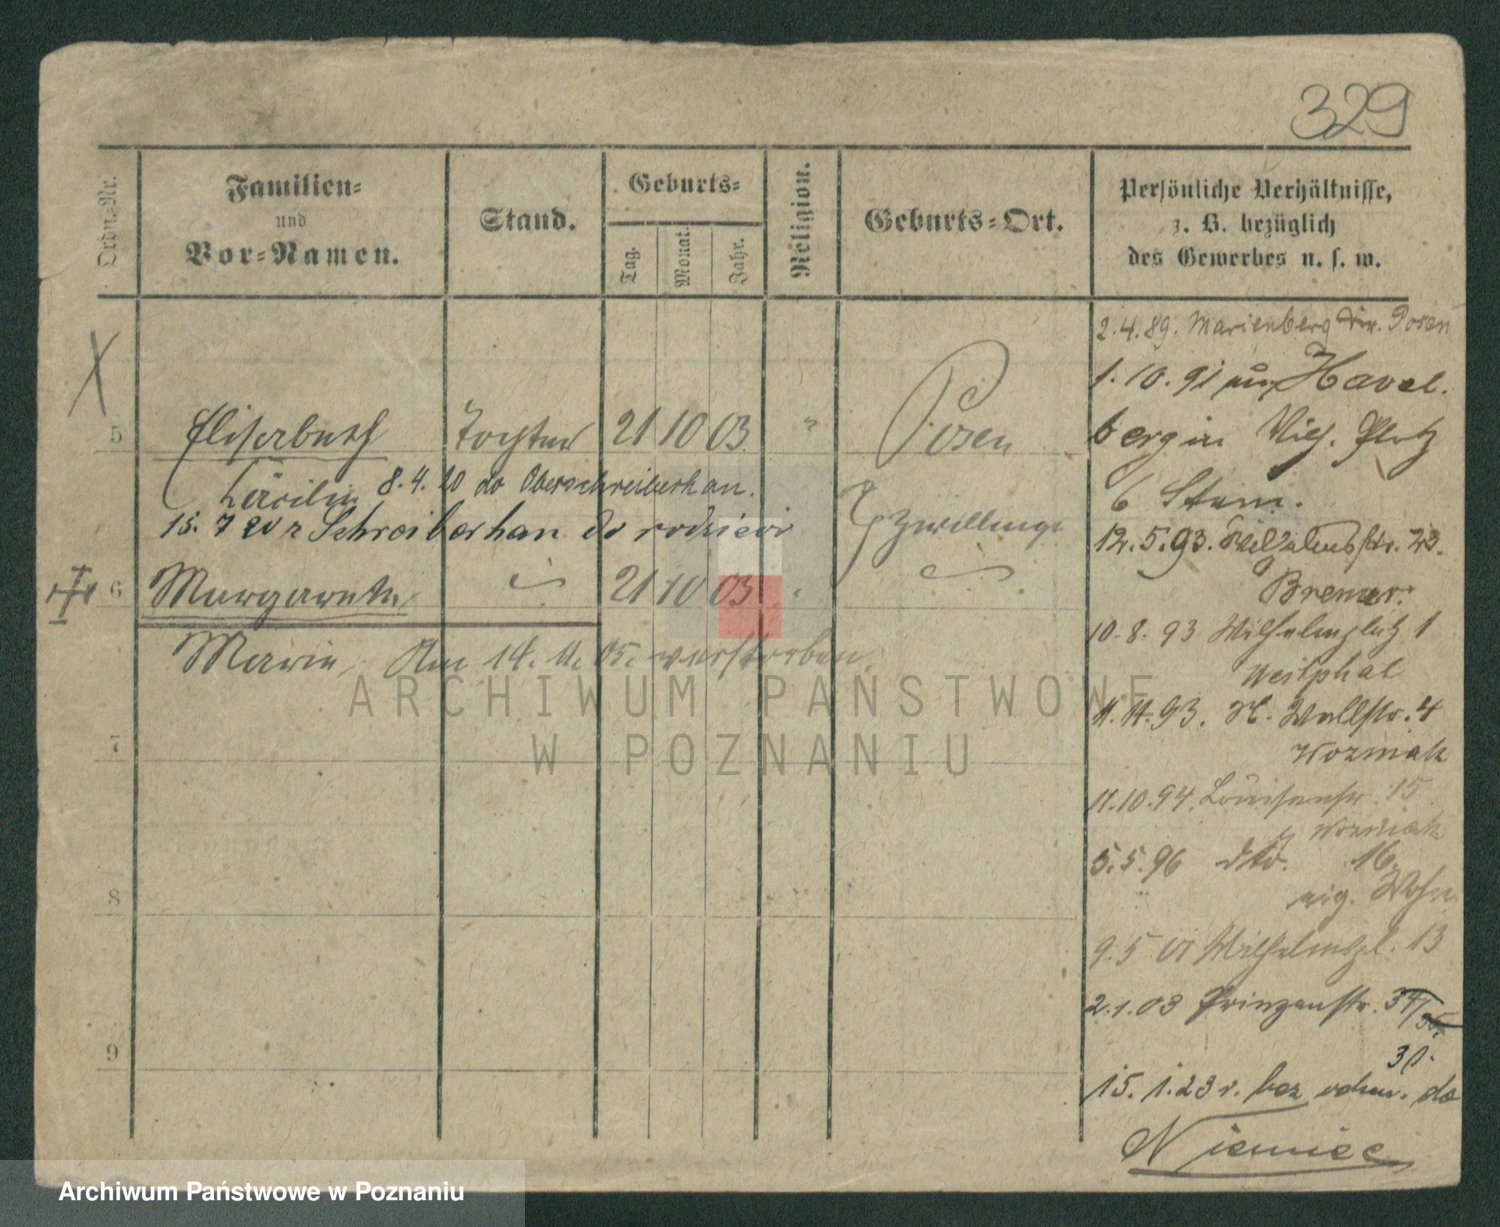 329
Ordn.-Nr.
Familien-
und
Vor-Namen.
Stand.
Geburts-
Tag.
Monat.
Jahr.
Religion.
Geburts-Ort.
Persönliche Verhältnisse,
z. B. bezüglich
des Gewerbes u. s. w.
5 Elisabeth Tochter 21 10 03 " Posen
Cäcilie 8.4.20 do Oberschreiberhan.
15. 7 20 z Schreiberhan do rodziców
Zwillinge
6 Margarethe 21 10 03 "
Marie, Am 14. 11. 05. verstorben.
7
8
9
2.4.89. Marienberg Posen
1.10.91 aus Havel.
berg in Wilh. Platz
6 Stam.
12.5.93. Wilhelmstr. 23.
Bremer.
10.8.93 Wilhelmsplatz 1
Westphal
11.11.93. St. Wallstr. 4
Wozniak
11.10.94. Louisenstr. 15
Wozniak
5.5.96 dto. 16.
eig. Wohn
9.5 01 Wilhelmspl. 13
2.1.03 Prinzenstr. 34/
31.
15.1.23 r. bez odem. do
Niemiec
ARCHIWUM PAŃSTWOWE
W POZNANIU
Archiwum Państwowe w Poznaniu